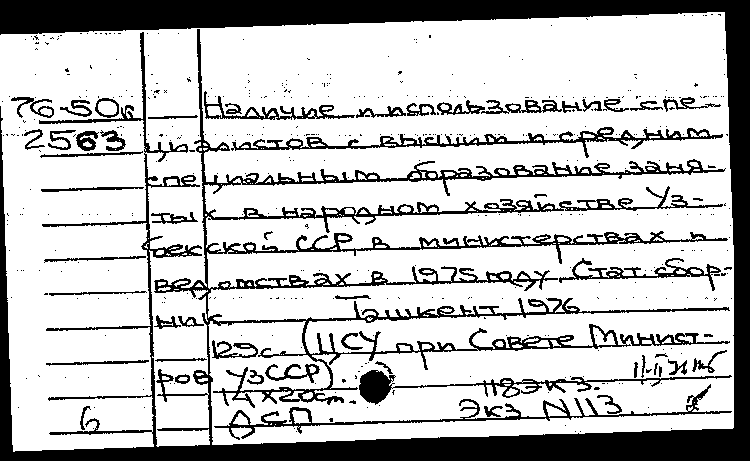 76-50к Наличие и использование спе-
2563 циалистов с высшим и средним
специальным образование, заня-
тых в народном хозяйстве Уз-
бекской ССР, в министерствах и
ведомствах в 1975 году. Стат. сбор-
ник. Ташкент, 1976
129 с. (ЦСУ при Совете Минист-
ров УзССР).
14 х 20 cm. 118 экз.
6 ДСП. Экз N 113.